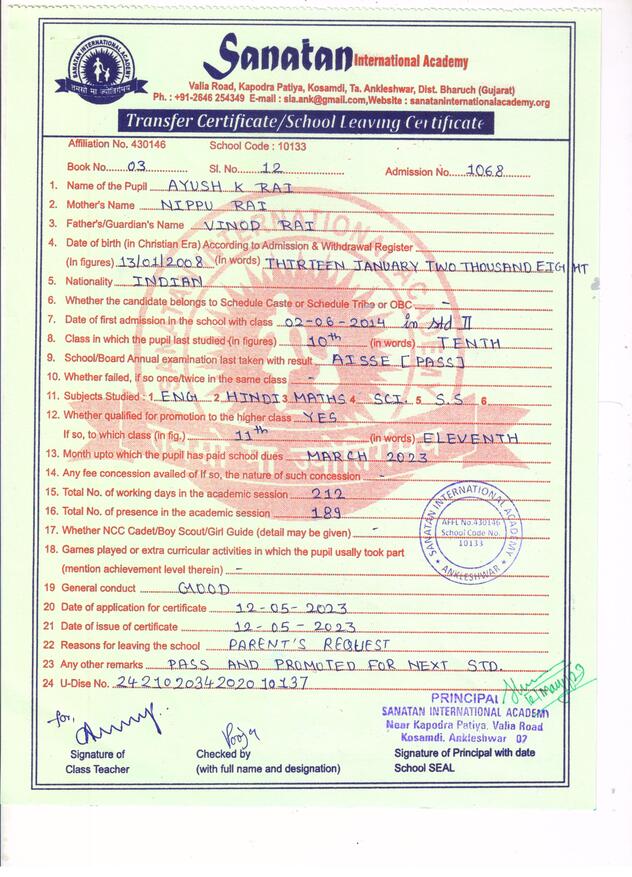 SANATAN INTERNATIONAL ACADEMY
तमसो मा ज्योतिर्गमय
Sanatan International Academy
Valia Road, Kapodra Patiya, Kosamdi, Ta. Ankleshwar, Dist. Bharuch (Gujarat)
Ph. : +91-2646 254349 E-mail : sia.ank@gmail.com,Website : sanataninternationalacademy.org
Transfer Certificate/School Leaving Certificate
Affiliation No. 430146 School Code : 10133
Book No. 03 Sl. No. 12 Admission No. 1068
1. Name of the Pupil AYUSH K RAI
2. Mother's Name NIPPU RAI
3. Father's/Guardian's Name VINOD RAI
4. Date of birth (in Christian Era) According to Admission & Withdrawal Register
(In figures) 13/01/2008 (In words) THIRTEEN JANUARY TWO THOUSAND EIGHT
5. Nationality INDIAN
6. Whether the candidate belongs to Schedule Caste or Schedule Tribe or OBC -
7. Date of first admission in the school with class 02-06-2014 in std II
8. Class in which the pupil last studied (in figures) 10th (in words) TENTH
9. School/Board Annual examination last taken with result AISSE [PASS]
10. Whether failed, if so once/twice in the same class -
11. Subjects Studied : 1 ENG 2 HINDI 3 MATHS 4 SCI. 5 S.S 6
12. Whether qualified for promotion to the higher class YES
If so, to which class (in fig.) 11th (in words) ELEVENTH
13. Month upto which the pupil has paid school dues MARCH 2023
14. Any fee concession availed of If so, the nature of such concession -
15. Total No. of working days in the academic session 212
16. Total No. of presence in the academic session 189
17. Whether NCC Cadet/Boy Scout/Girl Guide (detail may be given) -
18. Games played or extra curricular activities in which the pupil usally took part
(mention achievement level therein) -
SANATAN INTERNATIONAL ACADEMY
AFFL No.430146
School Code No.
10133
ANKLESHWAR
19 General conduct GOOD
20 Date of application for certificate 12-05-2023
21 Date of issue of certificate 12-05-2023
22 Reasons for leaving the school PARENT'S REQUEST
23 Any other remarks PASS AND PROMOTED FOR NEXT STD.
24 U-Dise No. 242102034202010137
12/May/23
PRINCIPAL
SANATAN INTERNATIONAL ACADEMY
Near Kapodra Patiya, Valia Road
Kosamdi, Ankleshwar 02
for,
Pooja
Signature of Checked by Signature of Principal with date
Class Teacher (with full name and designation) School SEAL